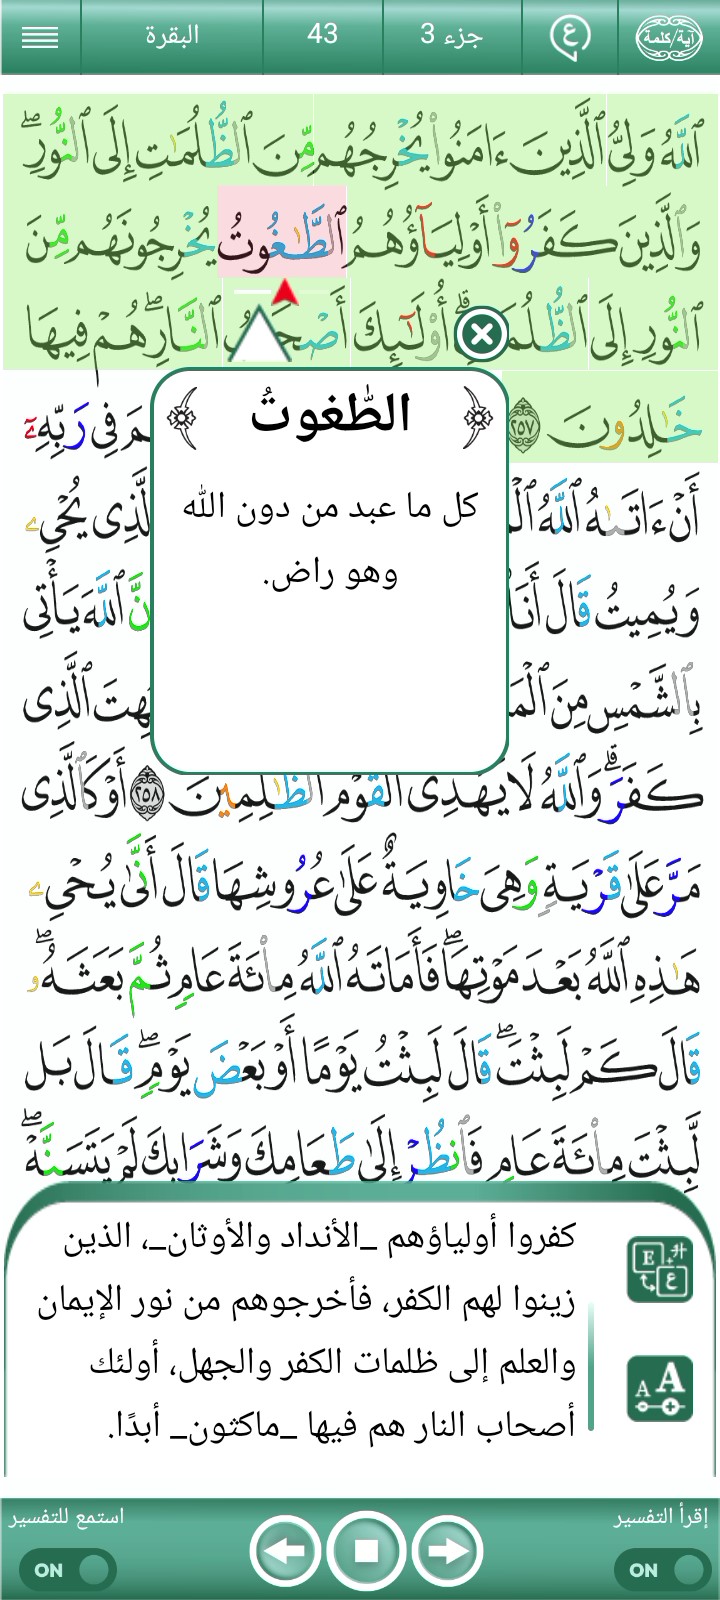 آية/كلمة
ع
جزء 3
43
البقرة
ٱللَّهُ وَلِيُّ ٱلَّذِينَ ءَامَنُوا۟ يُخْرِجُهُم مِّنَ ٱلظُّلُمَٰتِ إِلَى ٱلنُّورِۖ
وَٱلَّذِينَ كَفَرُوٓا۟ أَوْلِيَآؤُهُمُ ٱلطَّٰغُوتُ يُخْرِجُونَهُم مِّنَ
ٱلنُّورِ إِلَى ٱلظُّلُمَ أُو۟لَٰٓئِكَ أَصْحَٰ ٱلنَّارِۖ هُمْ فِيهَا
خَٰلِدُونَ ٢٥٧ فِى رَبِّهِۦٓ
أَنْ ءَاتَىٰهُ ٱللَّهُ يُحْىِۦ
وَيُمِيتُ قَالَ أَنَا۠ ٱللَّهَ يَأْتِى
بِٱلشَّمْسِ مِنَ ٱلَّذِى
كَفَرَۗ وَٱللَّهُ لَا يَهْدِى ٱلْقَوْمَ ٱلظَّٰلِمِينَ ٢٥٨ أَوْ كَٱلَّذِى
مَرَّ عَلَىٰ قَرْيَةٍ وَهِىَ خَاوِيَةٌ عَلَىٰ عُرُوشِهَا قَالَ أَنَّىٰ يُحْىِۦ
هَٰذِهِ ٱللَّهُ بَعْدَ مَوْتِهَاۖ فَأَمَاتَهُ ٱللَّهُ مِا۟ئَةَ عَامٍ ثُمَّ بَعَثَهُۥۖ
قَالَ كَمْ لَبِثْتَۖ قَالَ لَبِثْتُ يَوْمًا أَوْ بَعْضَ يَوْمٍۖ قَالَ بَل
لَّبِثْتَ مِا۟ئَةَ عَامٍ فَٱنظُرْ إِلَىٰ طَعَامِكَ وَشَرَابِكَ لَمْ يَتَسَنَّهْۖ
الطّٰغوتُ
كل ما عبد من دون الله
وهو راض.
كفروا أولياؤهم _الأنداد والأوثان_، الذين
زينوا لهم الكفر، فأخرجوهم من نور الإيمان
والعلم إلى ظلمات الكفر والجهل، أولئك
أصحاب النار هم فيها _ماكثون_ أبدًا.
E
ع
A A
إقرأ التفسير
استمع للتفسير
ON
ON